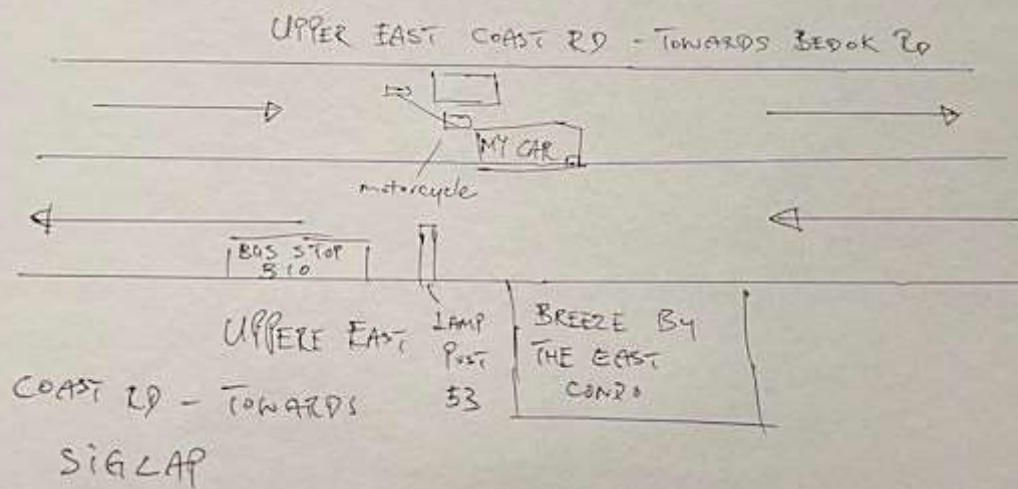 UPPER EAST COAST RD - TOWARDS BEDOK RD
MY CAR
motorcycle
BUS STOP
510
UPPERE EAST
COAST RD - TOWARDS
SIGLAP
LAMP
POST
53
BREEZE BY
THE EAST
CONDO